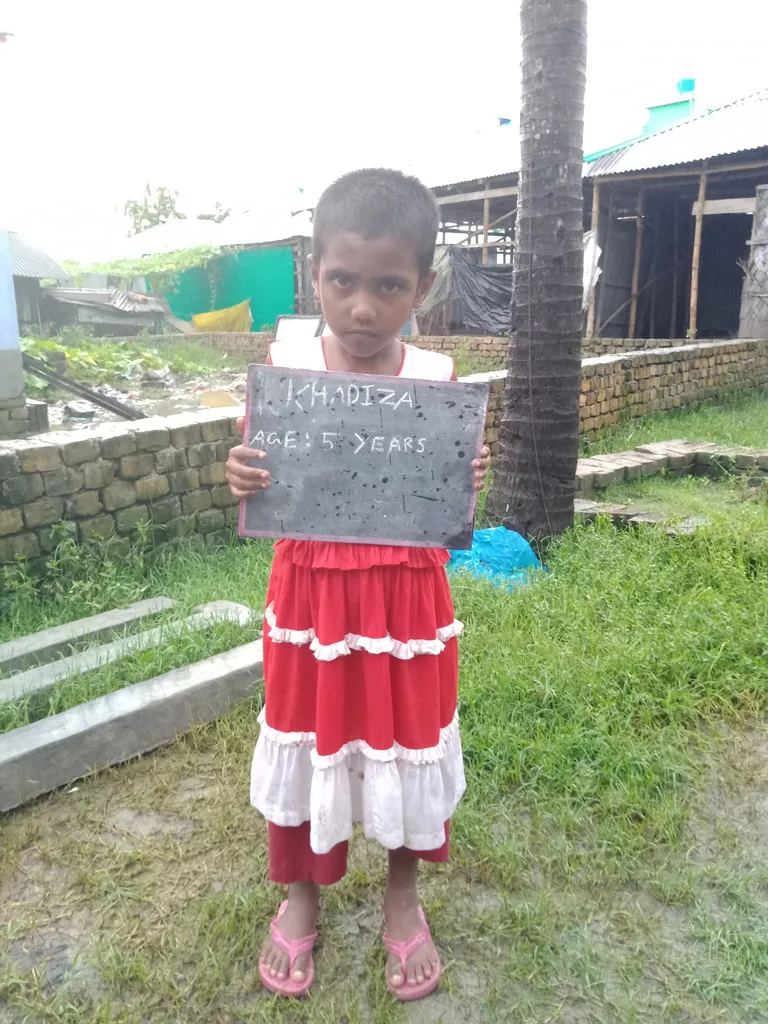 KHADIZA
AGE: 5 YEARS